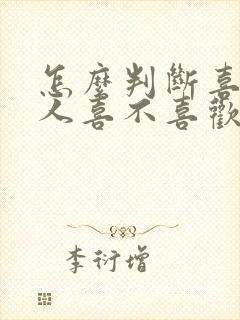 怎麼判斷喜
人喜不喜歡
李衍增